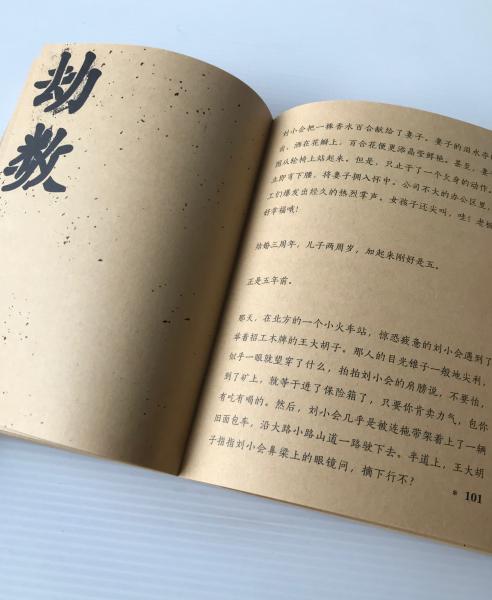 劫数
刘小会把一株香水百合献给了妻子。妻子的泪水夺
前，洒在花瓣上，百合花便更添晶莹鲜艳。甚至，妻
图从轮椅上站起来。但是，只止于了一个欠身的动作
立即弯下腰，将妻子拥入怀中。公司不大的办公区里，
工们爆发出经久的热烈掌声。女孩子还尖叫，哇！老板
好幸福哦！
结婚三周年，儿子两周岁，加起来刚好是五。
正是五年前。
那天，在北方的一个小火车站，惊恐疲惫的刘小会遇到了
举着招工木牌的王大胡子。那人的目光锥子一般地尖利，
似乎一眼就望穿了什么，拍拍刘小会的肩膀说，不要怕，
到了矿上，就等于进了保险箱了，只要你肯卖力气，包你
有吃有喝的。然后，刘小会几乎是被连拖带架着上了一辆
旧面包车，沿大路小路山道一路驶下去。半道上，王大胡
子指指刘小会鼻梁上的眼镜问，摘下行不？
101